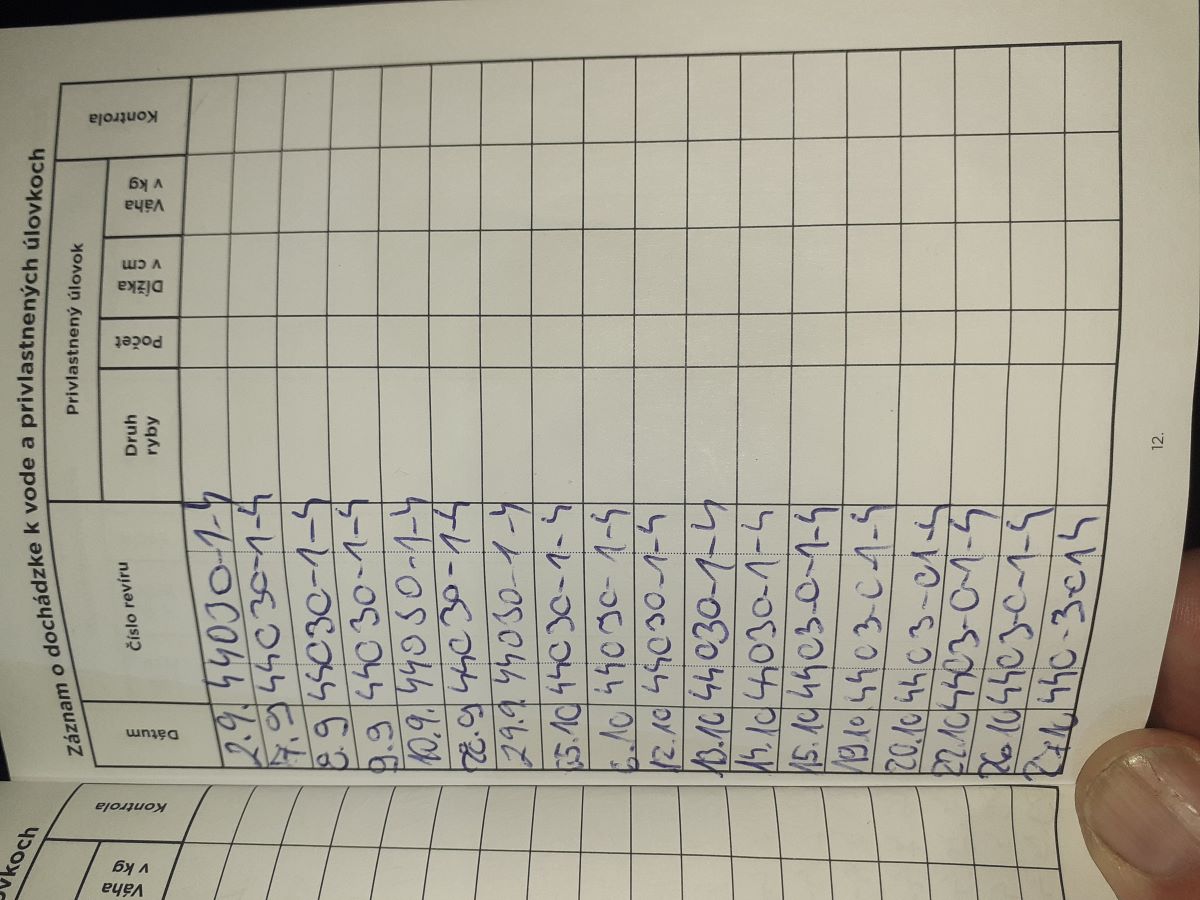 Záznam o dochádzke k vode a privlastnených úlovkoch
Dátum
Číslo revíru
Privlastnený úlovok
Druh ryby
Počet
Dĺžka v cm
Váha v kg
Kontrola
2.9. 44030-1-4
7.9 44030-1-4
8.9 44030-1-4
9.9 44030-1-4
10.9. 44030-1-4
28.9 44030-1-4
29.9 44030-1-4
05.10 44030-1-4
6.10 44030-1-4
12.10 44030-1-4
13.10 44030-1-4
14.10 44030-1-4
15.10 4403-0-1-4
19.10 4403-01-4
20.10 4403-01-4
22.10 4403-0-1-4
26.10 4403-0-1-4
27.10 440-3014
12.
vkoch
Váha v kg
Kontrola